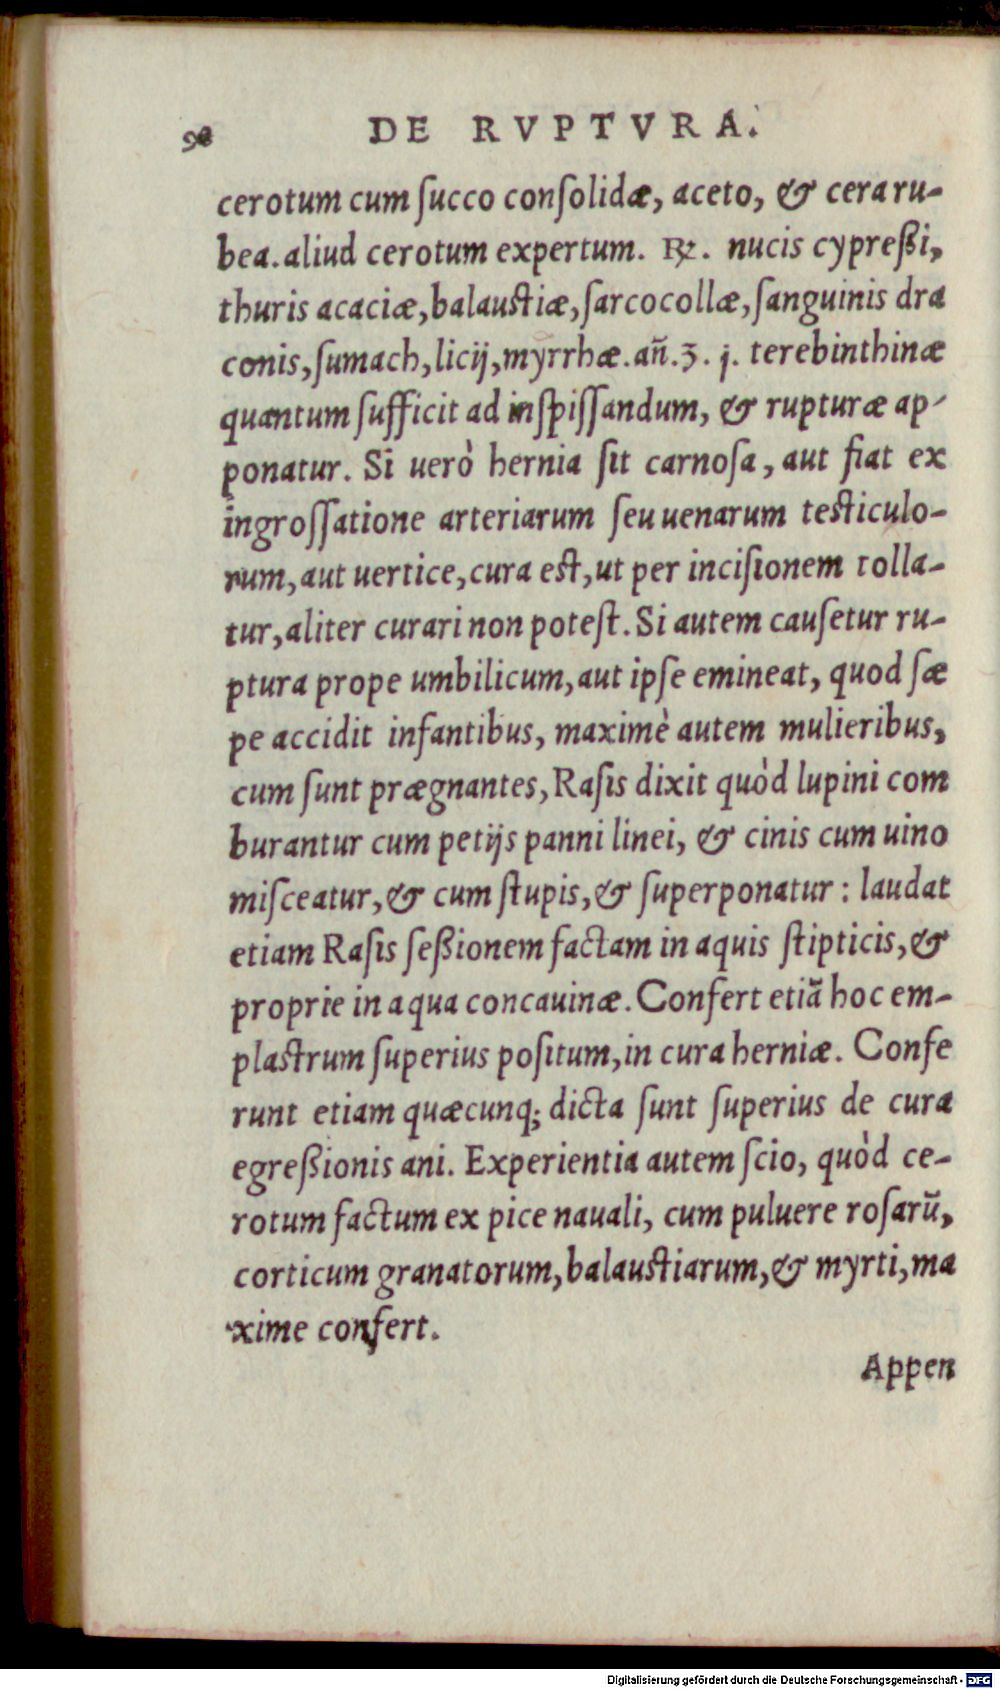 DE RVPTVRA.
cerotum cum ſucco conſolidæ, aceto, & cera ru-
bea. aliud cerotum expertum. ℞. nucis cypreßi,
thuris acaciæ, balauſtiæ, ſarcocollæ, ſanguinis dra
conis, ſumach, licij, myrrhæ. an̄. ʒ. j. terebinthinæ
quantum ſufficit ad inſpiſſandum, & rupturæ ap-
ponatur. Si uerò hernia ſit carnoſa, aut fiat ex
ingroſſatione arteriarum ſeu uenarum teſticulo-
rum, aut uertice, cura eſt, ut per inciſionem tolla-
tur, aliter curari non poteſt. Si autem cauſetur ru-
ptura prope umbilicum, aut ipſe emineat, quod ſæ
pe accidit infantibus, maximè autem mulieribus,
cum ſunt prægnantes, Raſis dixit quòd lupini com
burantur cum petijs panni linei, & cinis cum uino
miſceatur, & cum ſtupis, & ſuperponatur: laudat
etiam Raſis ſeßionem factam in aquis ſtipticis, &
proprie in aqua concauinæ. Confert etiã hoc em-
plaſtrum ſuperius poſitum, in cura herniæ. Confe
runt etiam quæcunq; dicta ſunt ſuperius de cura
egreßionis ani. Experientia autem ſcio, quòd ce-
rotum factum ex pice nauali, cum puluere roſarũ,
corticum granatorum, balauſtiarum, & myrti, ma
xime confert.
Appen
Digitalisierung gefördert durch die Deutsche Forschungsgemeinschaft - DFG